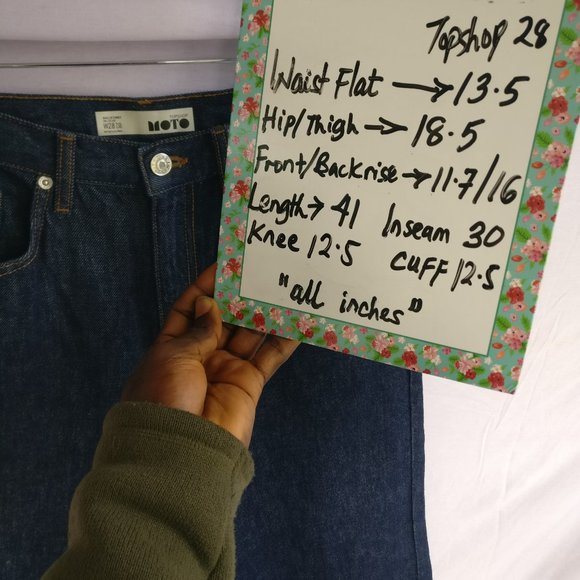 Topshop 28
Waist Flat → 13.5
Hip/Thigh → 18.5
Front/Backrise → 11.7/16
Length → 41 Inseam 30
Knee 12.5 CUFF 12.5
"all inches"
TOPSHOP
MOTO
W28